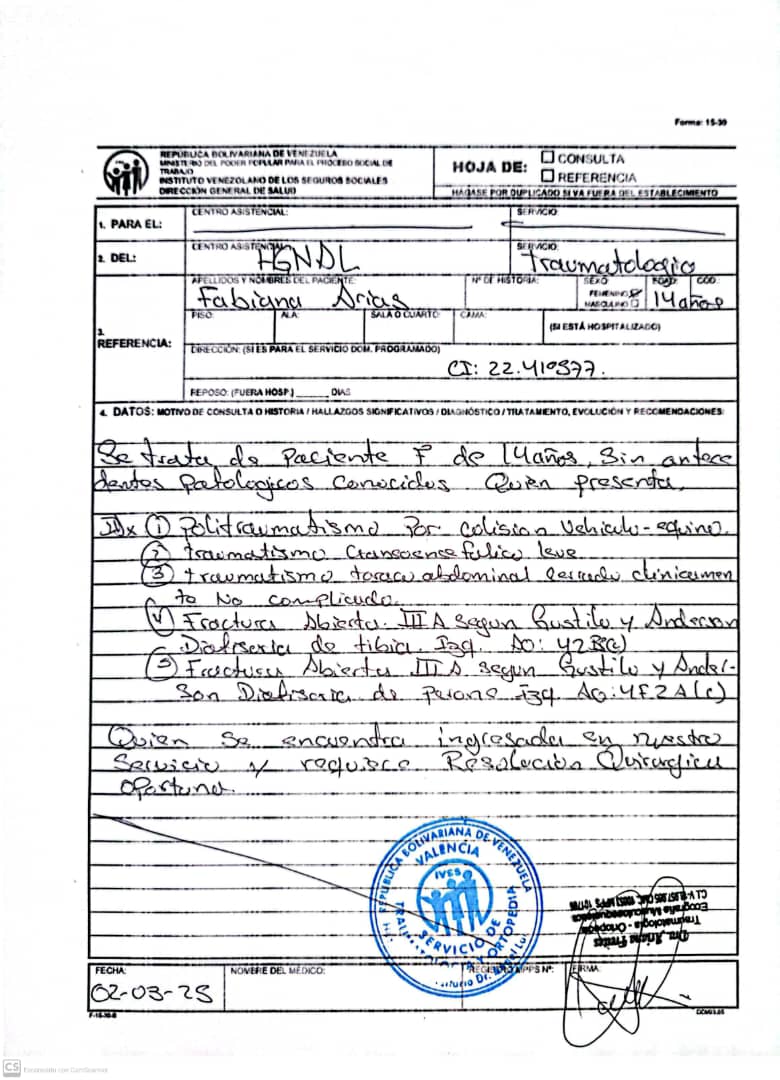 Forma: 15-30
REPÚBLICA BOLIVARIANA DE VENEZUELA
MINISTERIO DEL PODER POPULAR PARA EL PROCESO SOCIAL DE
TRABAJO
INSTITUTO VENEZOLANO DE LOS SEGUROS SOCIALES
DIRECCIÓN GENERAL DE SALUD
HOJA DE:
CONSULTA
REFERENCIA
HÁGASE POR DUPLICADO SI VA FUERA DEL ESTABLECIMIENTO
1. PARA EL:
CENTRO ASISTENCIAL:
SERVICIO
2. DEL:
CENTRO ASISTENCIAL
HGNDL
SERVICIO:
Traumatologio
3.
REFERENCIA:
APELLIDOS Y NOMBRES DEL PACIENTE:
Fabiana Arias
Nº DE HISTORIA:
SEXO:
FEMENINO
MASCULINO
EDAD:
14 años
COD.:
PISO:
ALA:
SALA O CUARTO:
CAMA:
(SI ESTÁ HOSPITALIZADO)
DIRECCIÓN: (SI ES PARA EL SERVICIO DOM. PROGRAMADO)
CI: 22.410977.
REPOSO: (FUERA HOSP.) ______ DIAS
4. DATOS: MOTIVO DE CONSULTA O HISTORIA / HALLAZGOS SIGNIFICATIVOS / DIAGNÓSTICO / TRATAMIENTO, EVOLUCIÓN Y RECOMENDACIONES:
Se trata de Paciente F de 14 años, Sin antece
dentes patologicos conocidos Quien presenta,
IDx ① Politraumatismo Por colision Vehiculo-equino.
② traumatismo Craneoencefalico leve
③ traumatismo toraco abdominal cerrado clinicamen
te No complicado.
④ Fractura Abierta III A segun Gustilo y Anderson
Diafisaria de tibia. Izq. AO: 42B(c)
⑤ Fractura Abierta III A segun Gustilo y Ander-
son Diafisaria de Perone Izq. AO:4F2A(c)
Quien Se encuentra ingresada en nuestro
Servicio y requiere Resolucion Quirurgica
oportuna.
REPUBLICA BOLIVARIANA DE VENEZUELA
VALENCIA
IVSS
SERVICIO DE
TRAUMATOLOGIA Y ORTOPEDIA
Dra. Ariana Freites
Traumatología - Ortopedia
Ecografía Musculoesquelética
FECHA:
02-03-25
NOMBRE DEL MÉDICO:
REGISTRO MPPS Nº:
FIRMA:
F-15-30-B
CS Escaneado con CamScanner